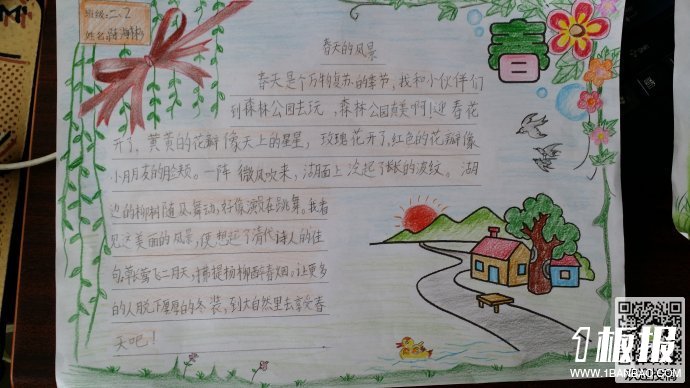 班级:二、2
姓名:
春
春天的风景
春天是个万物复苏的季节,我和小伙伴们
到森林公园去玩,森林公园真美啊!迎春花
开了,黄黄的花瓣像天上的星星,玫瑰花开了,红色的花瓣像
小朋友的脸颊。一阵微风吹来,湖面上泛起了长长的波纹。湖
边的柳树随风舞动,好像演员在跳舞。我看
见这美丽的风景,便想起了清代诗人的佳
句:草长莺飞二月天,拂堤杨柳醉春烟。让更多
的人脱下厚厚的冬装,到大自然里去享受春
天吧!
1板报
WWW.1BANBAO.COM